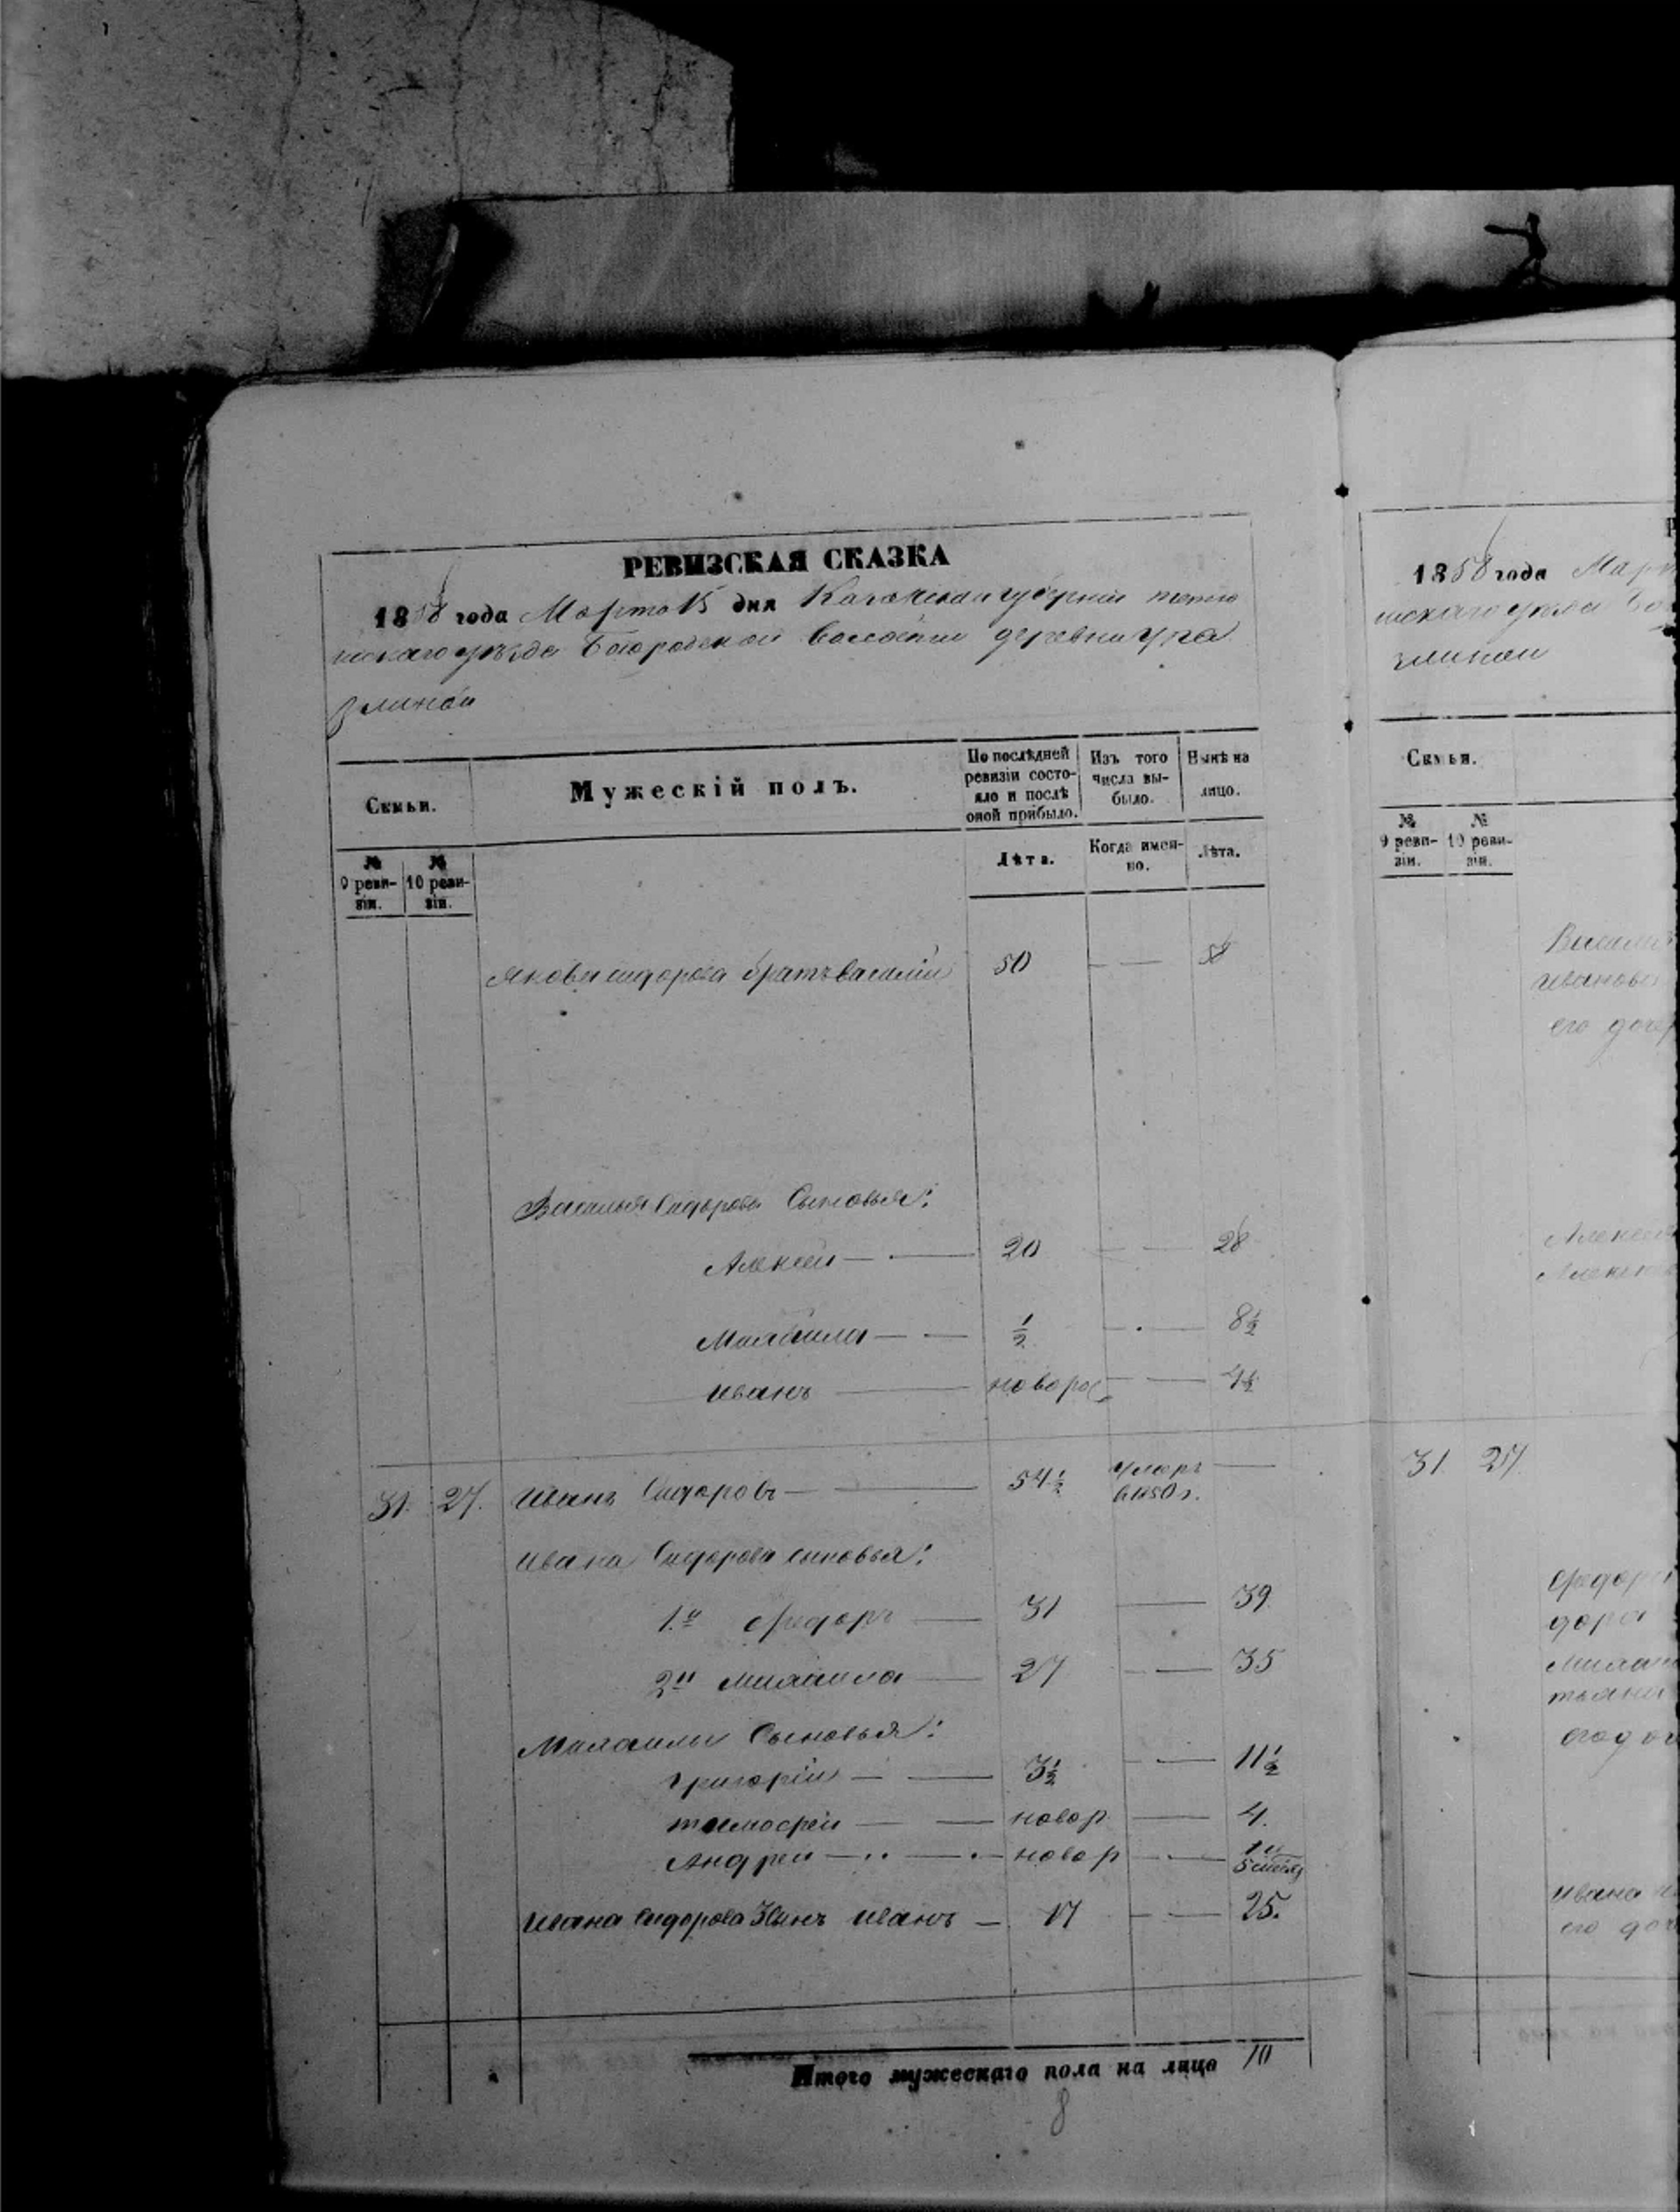 РЕВИЗСКАЯ СКАЗКА
1858 года Марта 15 дня Казанской губернии
уѣзда Богородской волости деревни
Семьи.
Мужескій полъ.
По послѣдней ревизіи состояло и послѣ оной прибыло.
Изъ того числа выбыло.
Нынѣ на лицо.
№ 9 ревизіи.
№ 10 ревизіи.
Лѣта.
Когда именно.
Лѣта.
Якова Сидорова братъ Василій 50 — — 58
Василья Сидорова Сыновья:
Алексей — — 20 — — 28
Михайла — — ½ — — 8½
Иванъ — новорож — — 4½
31. 27. Иванъ Сидоровъ — — 54½ умеръ в 1850 г. —
Ивана Сидорова сыновья:
1й Федоръ — 31 — 39
2й Михайла — 27 — — 35
Михайлы Сыновья:
Григорій — — 3½ — — 11½
тимофей — — новор — 4.
Андрей — — новор — —
Ивана Сидорова 3 сынъ Иванъ — 17 — — 25.
Итого мужескаго пола на лицо 10
8
1858 года
Семьи.
№ 9 ревизіи.
№ 10 ревизіи.
его
31 27
Ивана
его